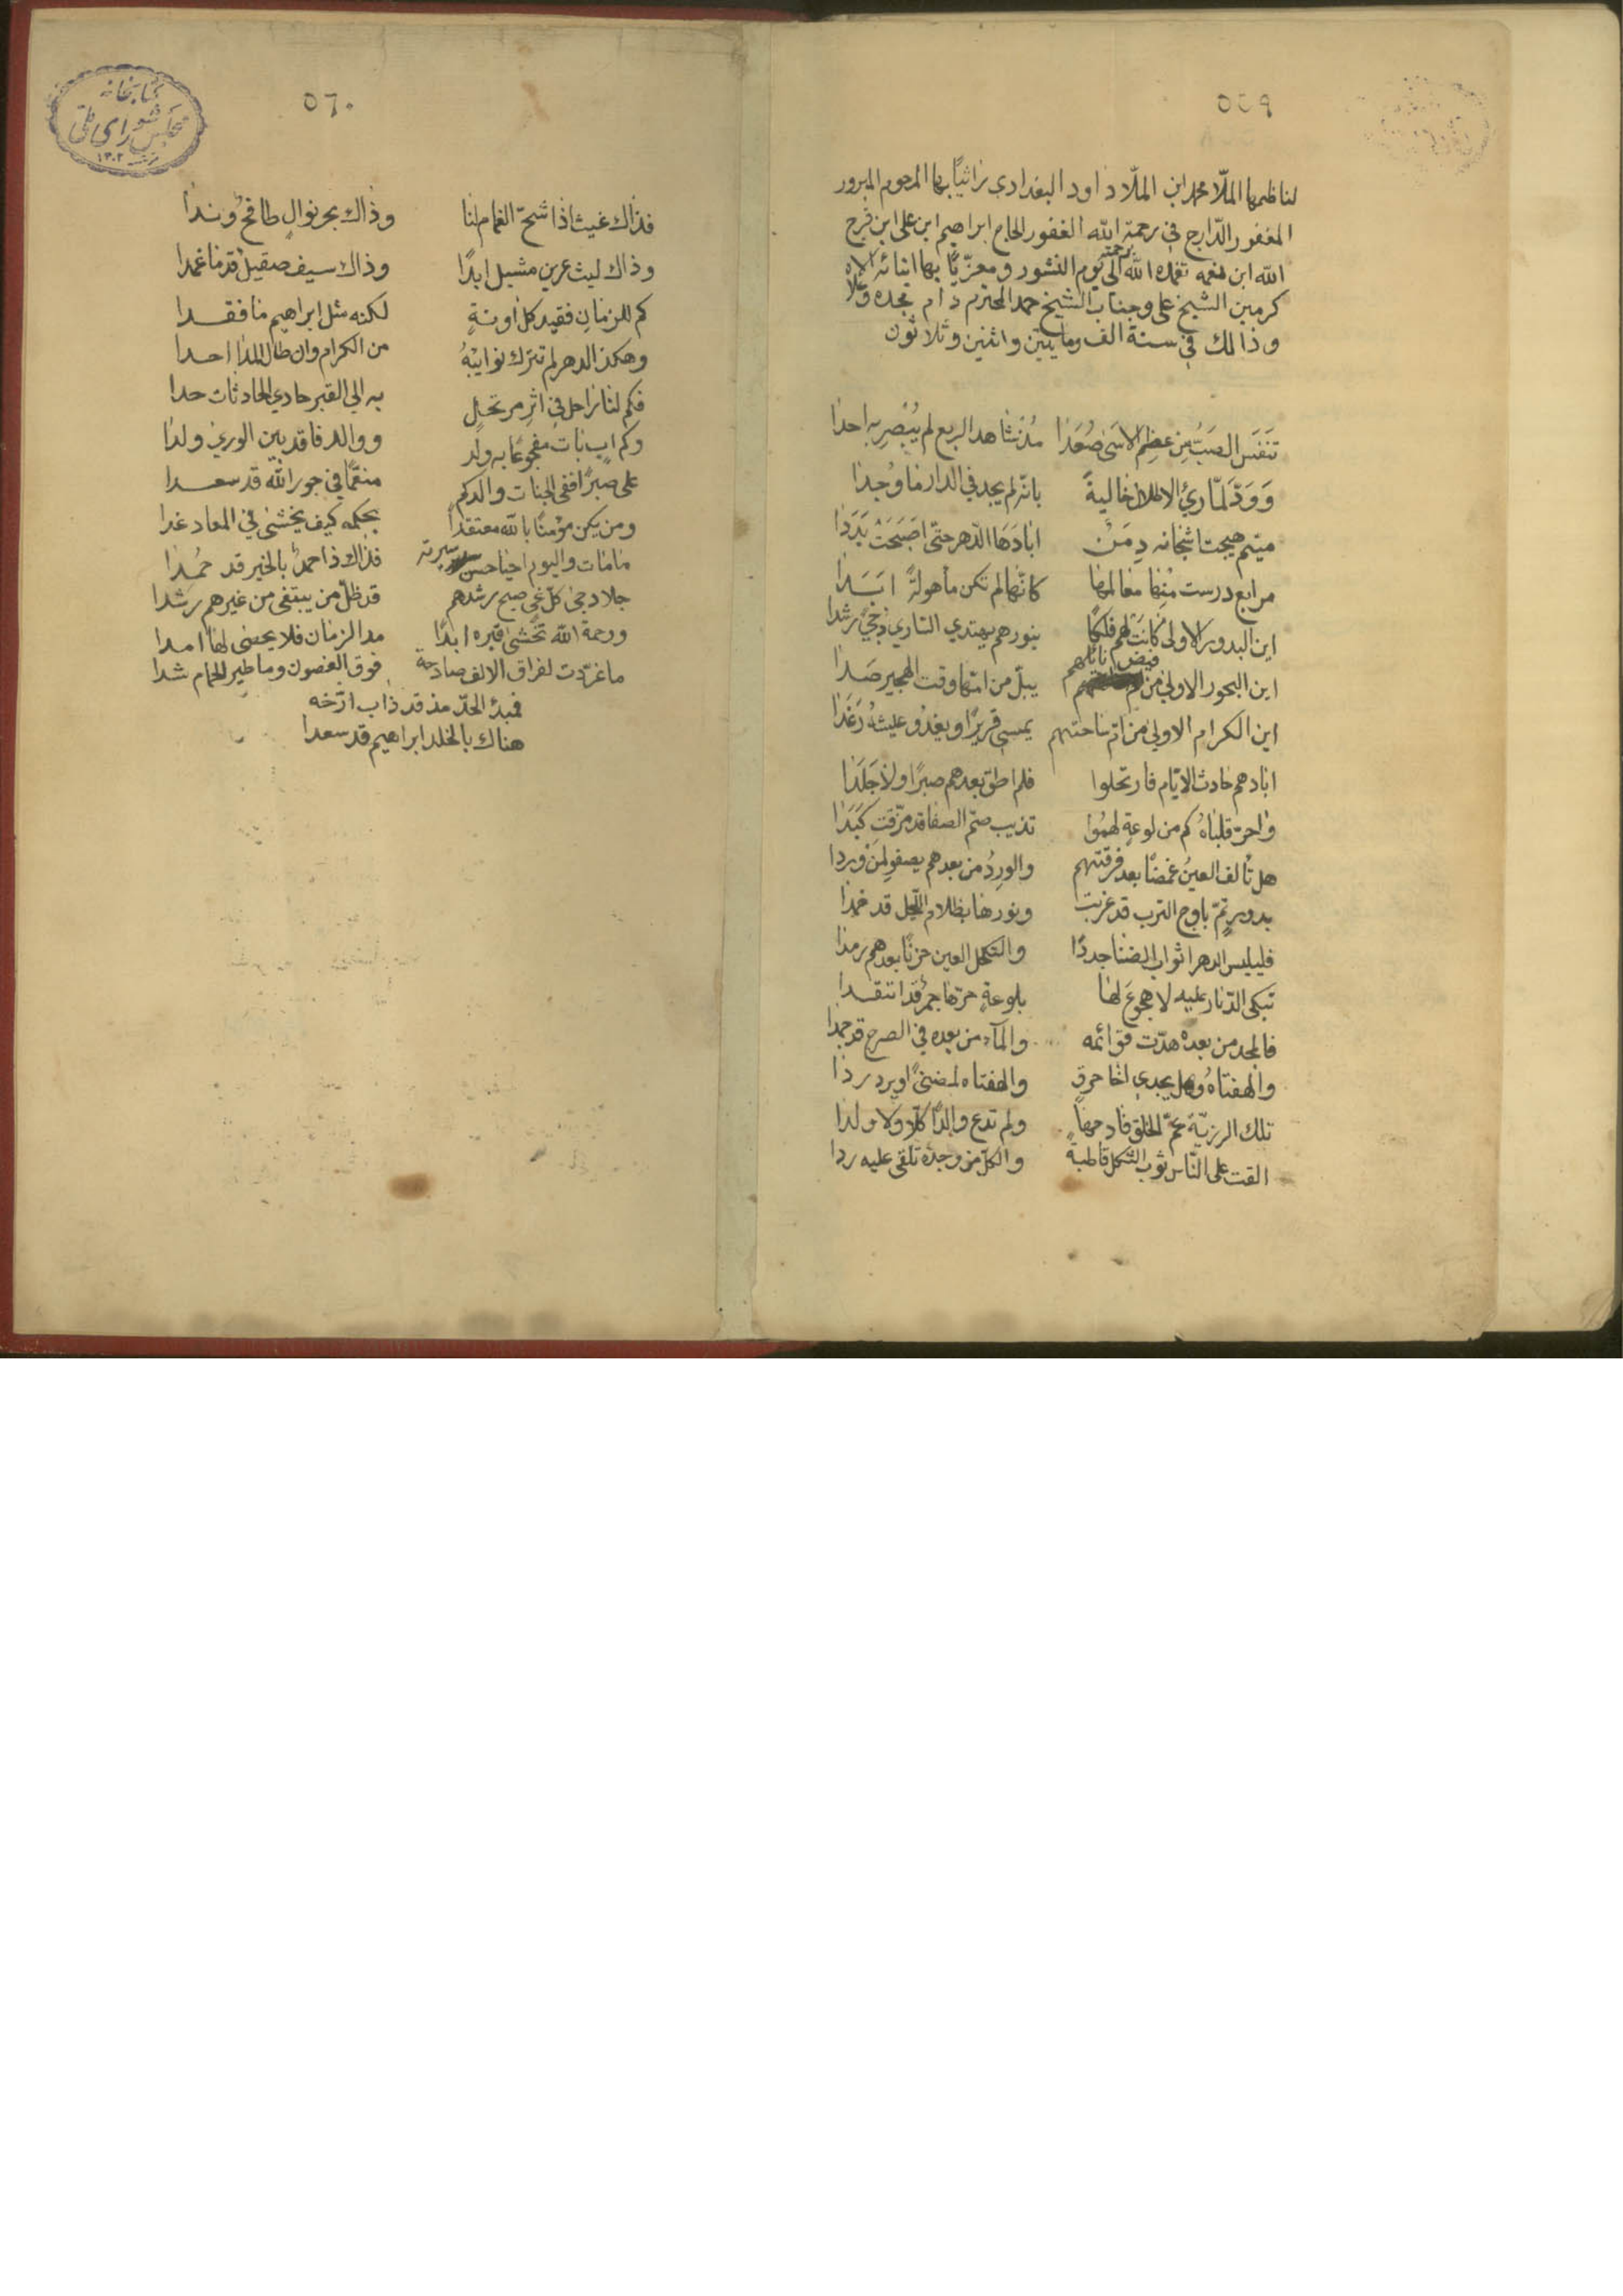 ٥٥٩
لناظمها الملّا محمد ابن الملّا داود البغدادي راثيًا بها المرحوم المبرور
المغفور الدّارج في رحمة الله الغفور الحاج ابراهيم ابن على ابن فرج
الله ابن نعمه تغمده الله برحمته الى يوم النشور ومعزّيًا بها ابنائه
كرمين الشيخ على وجناب الشيخ حمد المحترم دام مجده وعلا
وذالك في سنة الف ومايتين واثنين وثلاثون
تَنَفَس الصَبُّ مِن عظِم الاسَى صُعَدَا مُذ شاهد الربع لم يُبْصِر بِه احدا
وَوَدّ لمّا رئ الاطلال خالية بانّه لم يجد في الدار ما وُجدا
ميتم هيجت اشجانه دِمَنٌ ابادَهَا الدّهر حتّى اصَبَحَتْ بَدَدَا
مرابع درست مِنها معالمها كانّها لم تكن مأهولةً ابَدَا
اين البدور الاولى كانَتْ لهم فلكًا بنورهم يهتدي السّاري دجىً رشدا
اين البحور الاولي من فيض نايلهم يبلّ من امّها وقت الهجير صَدا
اين الكرام الاولي من امّ ساحتهم يمسى قريرًا ويغدُو عيشهُ رَغَدَا
ابادهم حادث الايّام فارتحلوا فلم اطق بعدهم صبرًا ولا جَلَدَا
واحرّ قلباهُ كم من لوعةٍ لهمُوا تذيب صمّ الصفا قد مزّقت كَبَدَا
هل تألف العينُ غمضًا بعد فرقتهم والوِردُ من بعدهم يصفو لِمَنْ وردا
بدور تمّ باوج الترب قد غربت ونورها بظلام اللّيل قد خمدا
فليلبس الدهر اثواب الضنا جددًا والتكحل العين حزنًا بعدهم رمدا
تبكى الدّيار عليه لا هجوعَ لها بلوعةٍ حرّها جمرٌ قد اتقدا
فالمجد من بعده هدّت قوائمه والمآء من بعده في الصرح قد جمدا
والهفتاهُ وهل يجدي اخا حرق والهفتاه لمضنىً او يرد ردا
تلك الرزيّة عمّ الخلق فادحها ولم تدع والدًا كلّا ولا ولدا
القت على النّاس ثوب الثكل قاطبةً والكلّ من وجده تلقى عليه ردا
٥٦٠
فذاك غيث اذا شحّ الغمام لنا وذاك بحر نوالٍ طافحٌ وندا
وذاك ليث عرين مشبل ابدًا وذاك سيف صقيل قدما غمدا
كم للزمانِ فقيد كل اونةٍ لكنه مثل ابراهيم ما فقدا
وهكذا الدهر لم تترك نوايبُهُ من الكرام وان طال المدا احدا
فكم لنا راحل في اثرِ مرتحلٍ به الى القبر حادي الحادثات حدا
وكم ابٍ بات مفجوعًا به ولد ووالد فاقد بين الورى ولدا
على صبرًا ففي الجنات والدكم منعّمًا في جور الله قد سعدا
ومن يكن مؤمنًا بالله معتقدًا بحكمه كيف يخشى في المعاد غدا
ما مات واليوم احيا حسن سيرته فذاك ذا احمدٌ بالخير قد حُمدا
جلا دجى كلّ غي صبح رشدهم قد ظلّ من يبتغى من غيرهم رشدا
ورحمة الله تخشى قبره ابدًا مدا الزمان فلا يحصى لها امدا
ما غرّدت لفراق الالف صادحة فوق الغصون وما طير الحمام شدا
فمبدئ الحدّ مذ قد ذاب ارّخه
هناك بالخلد ابراهيم قد سعدا
كتابخانه
مجلس شورای ملی
١٣٠٢